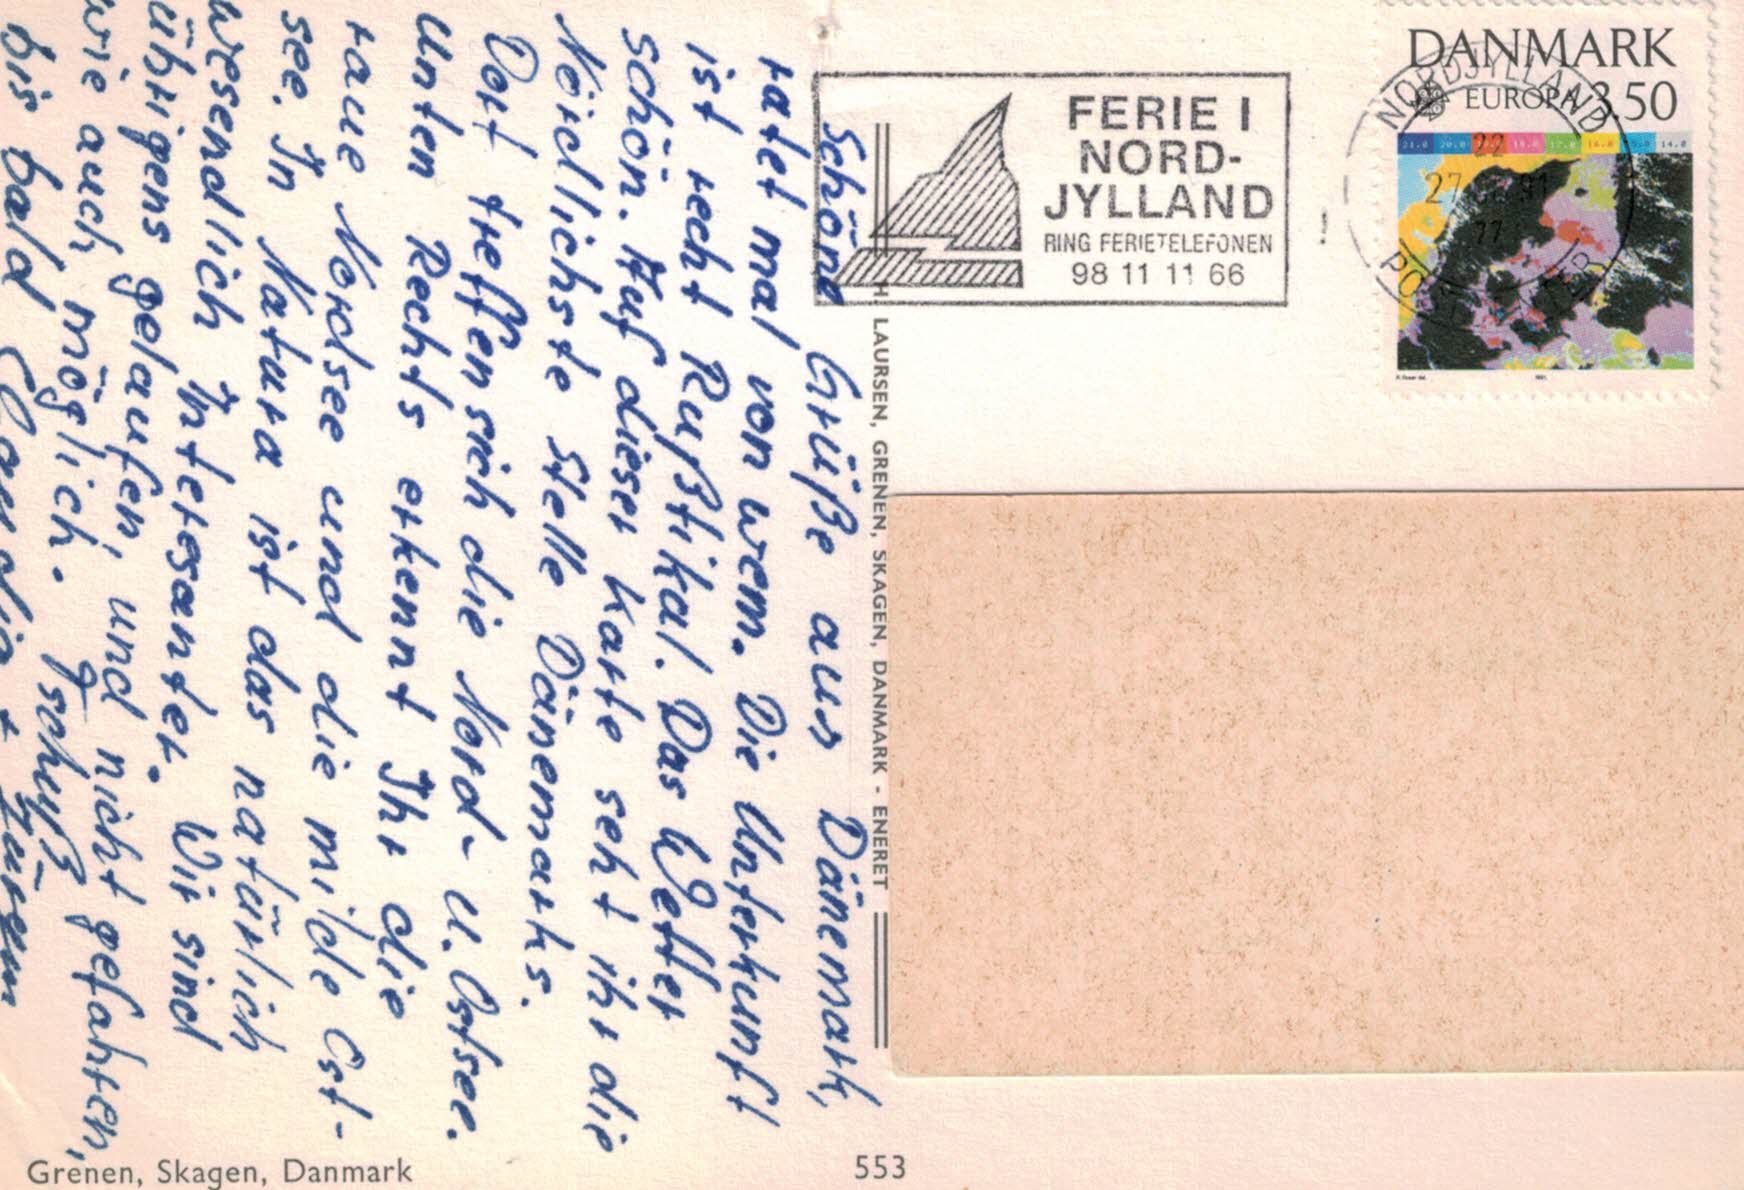 Schöne Grüße aus Dänemark,
ratet mal von wem. Die Unterkunft
ist recht Rußtikal. Das Wetter
schön. Auf dieser Karte seht ihr die
Nördlichste Stelle Dänemarks.
Dort treffen sich die Nord- u. Ostsee.
Unten Rechts erkennt Ihr die
raue Nordsee und die milde Ost-
see. In Natura ist das natürlich
wesendlich Interesanter. Wir sind
übrigens gelaufen, und nicht gefahren,
wie auch möglich.
bis bald
DANMARK
EUROPA 3.50
21.0 20.0 18.0 17.0 16.0 15.0 14.0
1991
NORDJYLLAND
22
27
91
FERIE I
NORD-
JYLLAND
RING FERIETELEFONEN
98 11 11 66
LAURSEN, GRENEN, SKAGEN, DANMARK - ENERET
Grenen, Skagen, Danmark
553